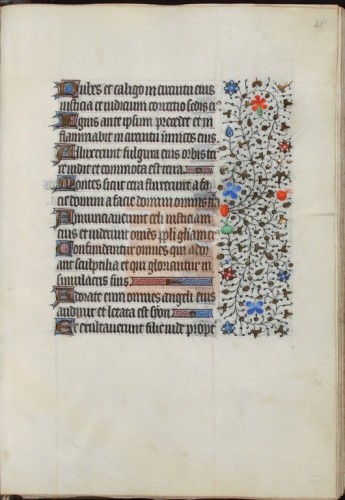 Nubes et caligo in circuitu eius
iusticia et iudicium correctio sedis ei
Ignis ante ipsum precedet et in
flammabit in circuitu inimicos eius
Alluxerunt fulgura eius orbis ter
re vidit et commota est terra
Montes sicut cera fluxerunt a fa
cie domini a facie domini omnis
Annunciaverunt celi iusticiam
eius et viderunt omnes populi gloriam
Confundantur omnes qui ador
ant sculptilia et qui gloriantur in
simulacris suis
Adorate eum omnes angeli eius
audivit et letata est syon
Et exultaverunt filie iude propt